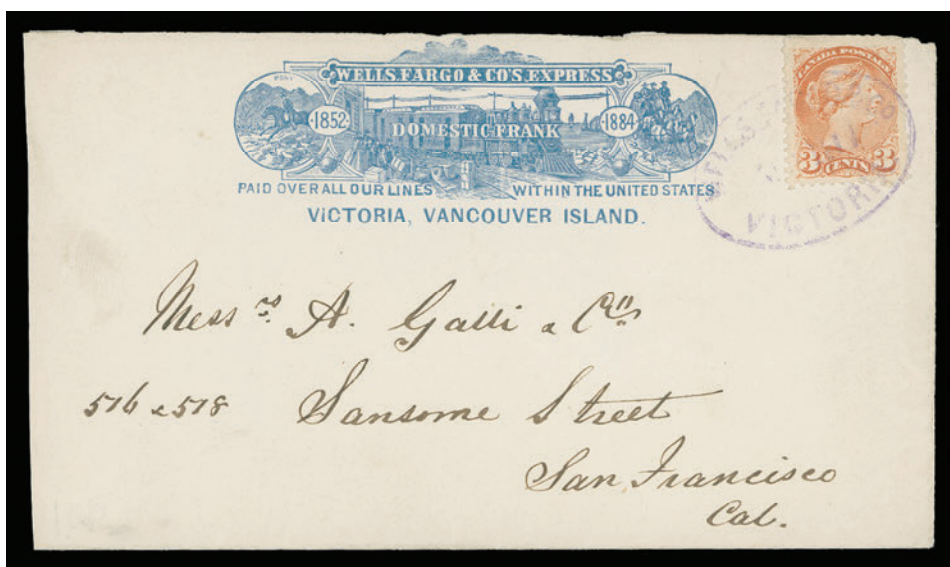 WELLS, FARGO & CO'S. EXPRESS
PONY
1852
DOMESTIC FRANK
1884
PAID OVER ALL OUR LINES WITHIN THE UNITED STATES
VICTORIA, VANCOUVER ISLAND.
CANADA POSTAGE
3 CENTS 3
WELLS
VICTORIA
Messrs A. Galli & Co
516 & 518 Sansome Street
San Francisco
Cal.